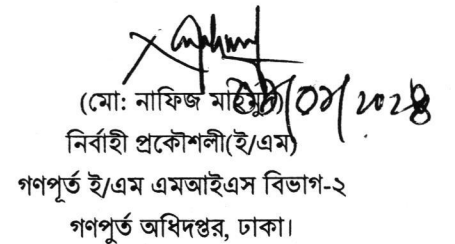 (মো: নাফিজ মাহমুদ)
নির্বাহী প্রকৌশলী(ই/এম)
গণপূর্ত ই/এম এমআইএস বিভাগ-২
গণপূর্ত অধিদপ্তর, ঢাকা।